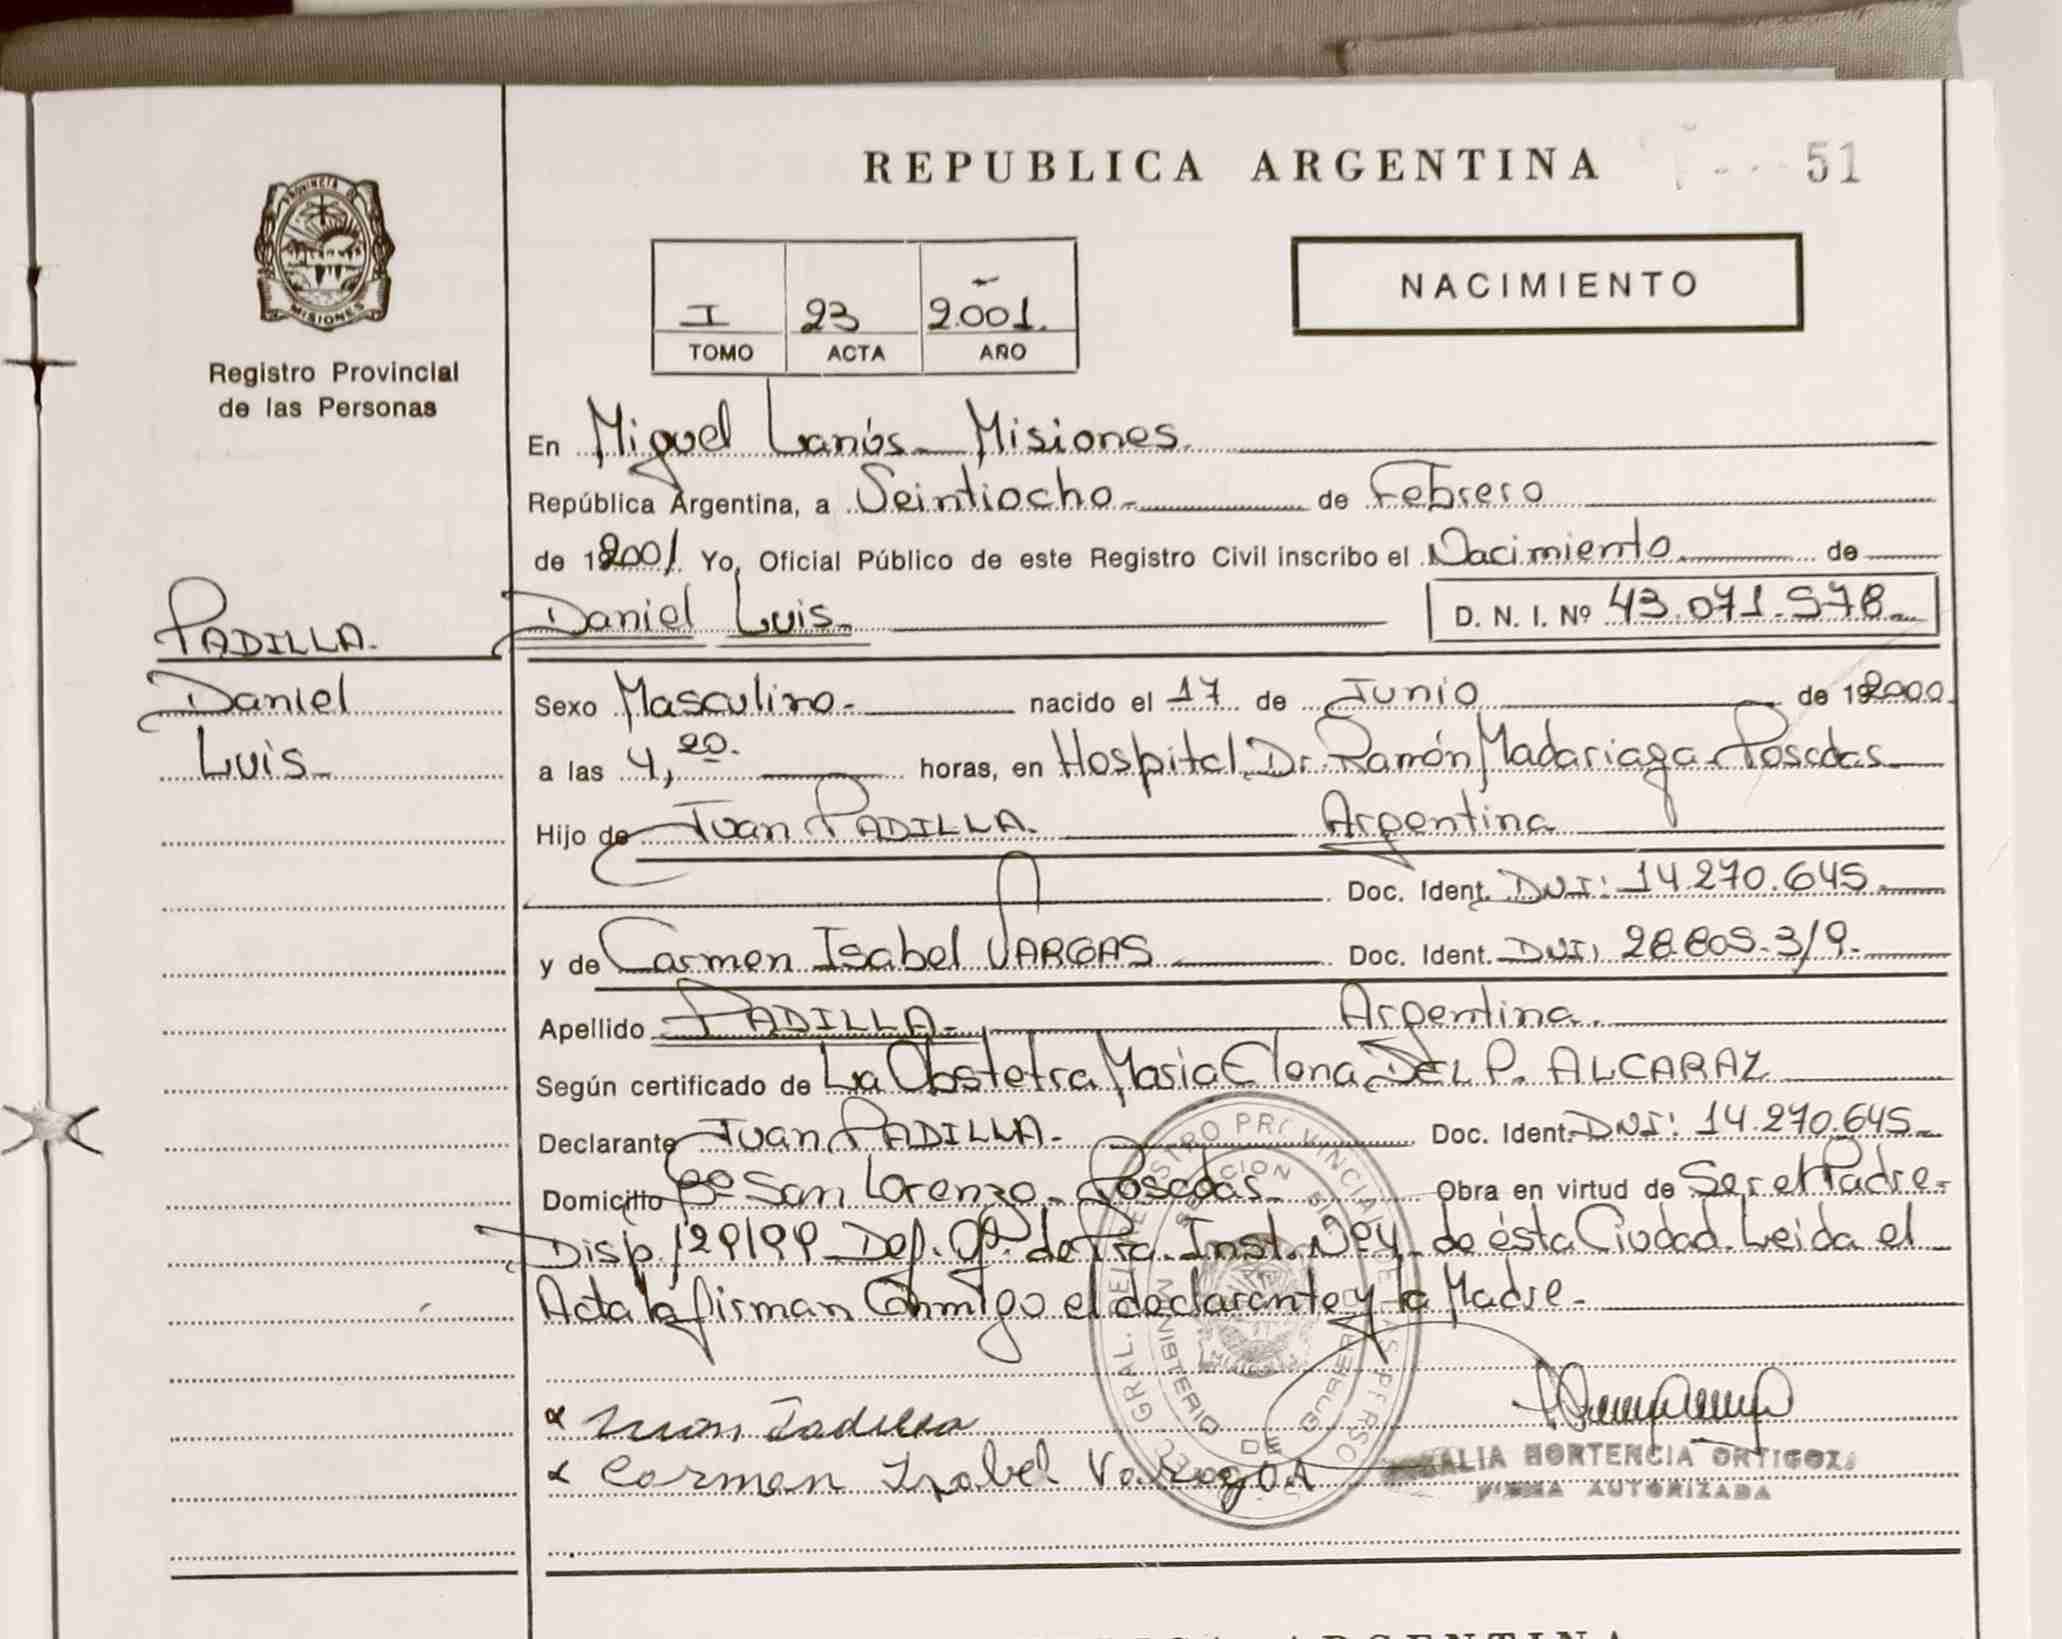 REPUBLICA ARGENTINA
51
PROVINCIA DE
MISIONES
Registro Provincial
de las Personas
I 23 2.001.
TOMO ACTA AÑO
NACIMIENTO
En Miguel Lanús - Misiones.
República Argentina, a Seintiocho - de Febrero
de 12001 Yo, Oficial Público de este Registro Civil inscribo el Nacimiento de
PADILLA. Daniel Luis. D. N. I. Nº 43.071.578.
Daniel
Luis
Sexo Masculino - nacido el 17 de Junio de 192000
a las 4,20. horas, en Hospital Dr. Ramón Madariaga - Posadas
Hijo de Juan PADILLA. Argentina
Doc. Ident. DNI: 14.270.645
y de Carmen Isabel VARGAS Doc. Ident. DNI: 28.805.319.
Apellido PADILLA. Argentina.
Según certificado de La Obstetra Maria Elena DEL P. ALCARAZ
Declarante Juan PADILLA. Doc. Ident. DNI: 14.270.645
Domicilio Bº San Lorenzo - Posadas. Obra en virtud de Ser el Padre.
Disp. 129/99 Def. Of. de Pra. Inst. Nº 4 de ésta Ciudad. Leida el
Acta la firman Conmigo el declarante y la Madre.
Juan Padilla
Carmen Isabel Vargas
HORTENCIA ORTIGOZA
FIRMA AUTORIZADA
ARGENTINA